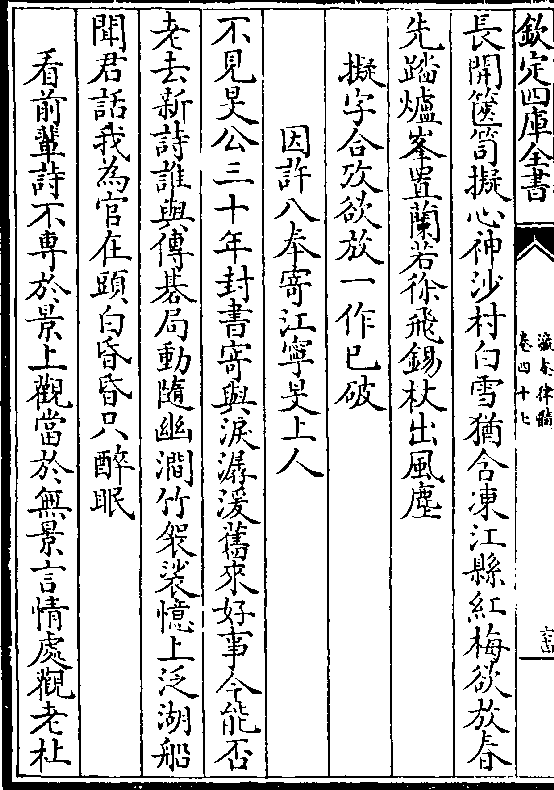 欽定四庫全書
瀛奎律髓
卷四十七
長開篋笥擬心神沙村白雪猶含凍江縣紅梅欲放春
先踏爐峯置蘭若徐飛錫杖出風塵
擬字合攷欲放一作已破
因許八奉寄江寧旻上人
不見旻公三十年封書寄與淚潺湲舊來好事今能否
老去新詩誰與傳棊局動隨幽澗竹袈裟憶上泛湖船
聞君話我為官在頭白昏昏只醉眠
看前輩詩不專於景上觀當於無景言情處觀老杜